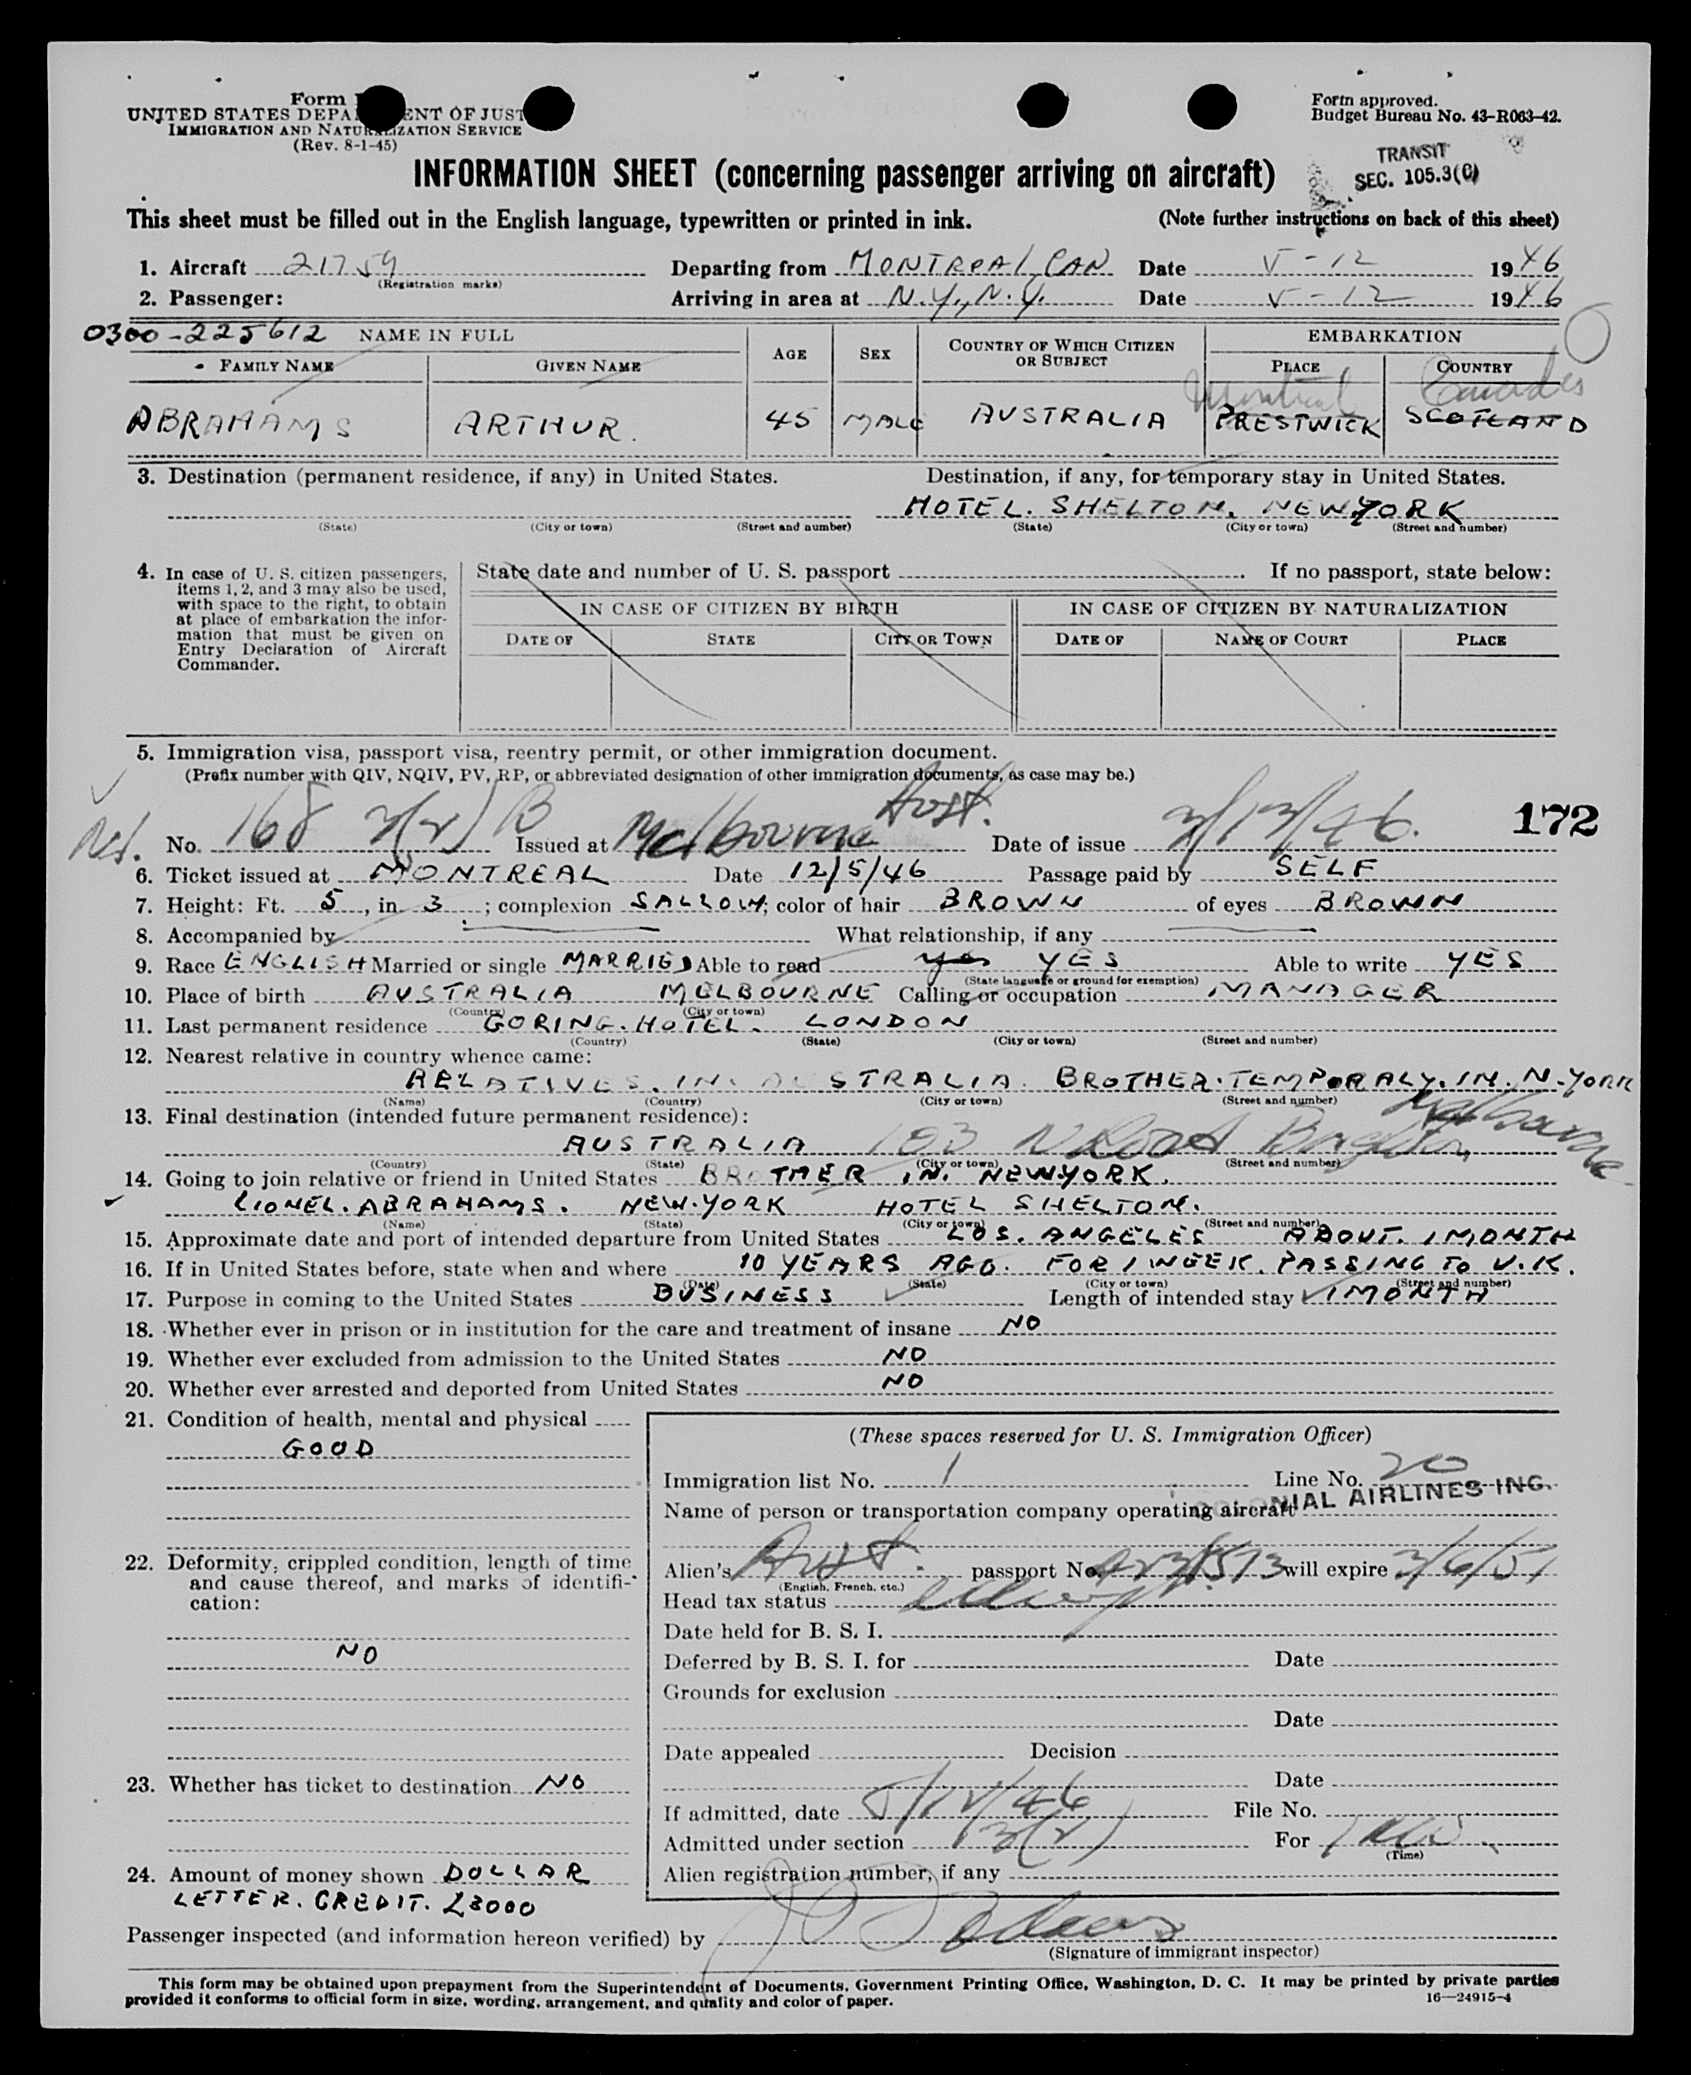 Form
UNITED STATES DEPA ENT OF JUST
IMMIGRATION AND NATURALIZATION SERVICE
(Rev. 8-1-45)
Form approved.
Budget Bureau No. 43-R063-42.
TRANSIT
SEC. 105.3(C)
INFORMATION SHEET (concerning passenger arriving on aircraft)
This sheet must be filled out in the English language, typewritten or printed in ink. (Note further instructions on back of this sheet)
1. Aircraft 21759 Departing from MONTREAL, CAN Date V-12 1946
(Registration marks)
2. Passenger: Arriving in area at N.Y., N.Y. Date V-12 1946
0300-225612 NAME IN FULL AGE SEX COUNTRY OF WHICH CITIZEN OR SUBJECT EMBARKATION
FAMILY NAME GIVEN NAME PLACE COUNTRY
Montreal Canada
ABRAHAMS ARTHUR. 45 MALE AUSTRALIA PRESTWICK SCOTLAND
3. Destination (permanent residence, if any) in United States. Destination, if any, for temporary stay in United States.
HOTEL. SHELTON. NEW YORK
(State) (City or town) (Street and number) (State) (City or town) (Street and number)
4. In case of U. S. citizen passengers, items 1, 2, and 3 may also be used, with space to the right, to obtain at place of embarkation the information that must be given on Entry Declaration of Aircraft Commander.
State date and number of U. S. passport . If no passport, state below:
IN CASE OF CITIZEN BY BIRTH IN CASE OF CITIZEN BY NATURALIZATION
DATE OF STATE CITY OR TOWN DATE OF NAME OF COURT PLACE
5. Immigration visa, passport visa, reentry permit, or other immigration document.
(Prefix number with QIV, NQIV, PV, RP, or abbreviated designation of other immigration documents, as case may be.)
172
No. 168 3(2) B Issued at Melbourne Aust. Date of issue 3/13/46.
6. Ticket issued at MONTREAL Date 12/5/46 Passage paid by SELF
7. Height: Ft. 5, in. 3; complexion SALLOW; color of hair BROWN of eyes BROWN
8. Accompanied by What relationship, if any
9. Race ENGLISH Married or single MARRIED Able to read yes YES Able to write YES
(State language or ground for exemption)
10. Place of birth AUSTRALIA MELBOURNE Calling or occupation MANAGER
(Country) (City or town)
11. Last permanent residence GORING. HOTEL. LONDON
(Country) (State) (City or town) (Street and number)
12. Nearest relative in country whence came:
RELATIVES. IN. AUSTRALIA. BROTHER. TEMPORALY. IN. N. YORK
(Name) (Country) (City or town) (Street and number)
13. Final destination (intended future permanent residence):
AUSTRALIA 103 Melbourne
(Country) (State) (City or town) (Street and number)
14. Going to join relative or friend in United States BROTHER IN. NEWYORK.
LIONEL. ABRAHAMS. NEW.YORK HOTEL SHELTON.
(Name) (State) (City or town) (Street and number)
15. Approximate date and port of intended departure from United States LOS. ANGELES ABOUT. 1 MONTH
16. If in United States before, state when and where 10 YEARS AGO. FOR 1 WEEK. PASSING TO U.K.
(Date) (State) (City or town) (Street and number)
17. Purpose in coming to the United States BUSINESS Length of intended stay 1 MONTH
18. Whether ever in prison or in institution for the care and treatment of insane NO
19. Whether ever excluded from admission to the United States NO
20. Whether ever arrested and deported from United States NO
21. Condition of health, mental and physical
GOOD
22. Deformity, crippled condition, length of time
and cause thereof, and marks of identifi-
cation:
NO
23. Whether has ticket to destination NO
24. Amount of money shown DOLLAR
LETTER. CREDIT. £3000
(These spaces reserved for U. S. Immigration Officer)
Immigration list No. 1 Line No. 20
Name of person or transportation company operating aircraft COLONIAL AIRLINES INC.
Alien's Aust. passport No. will expire 3/6/51
(English, French, etc.)
Head tax status
Date held for B. S. I.
Deferred by B. S. I. for Date
Grounds for exclusion
Date
Date appealed Decision
Date
If admitted, date 5/12/46 File No.
Admitted under section 3(2) For
(Time)
Alien registration number, if any
Passenger inspected (and information hereon verified) by
(Signature of immigrant inspector)
This form may be obtained upon prepayment from the Superintendent of Documents, Government Printing Office, Washington, D. C. It may be printed by private parties
provided it conforms to official form in size, wording, arrangement, and quality and color of paper. 16—24915-4